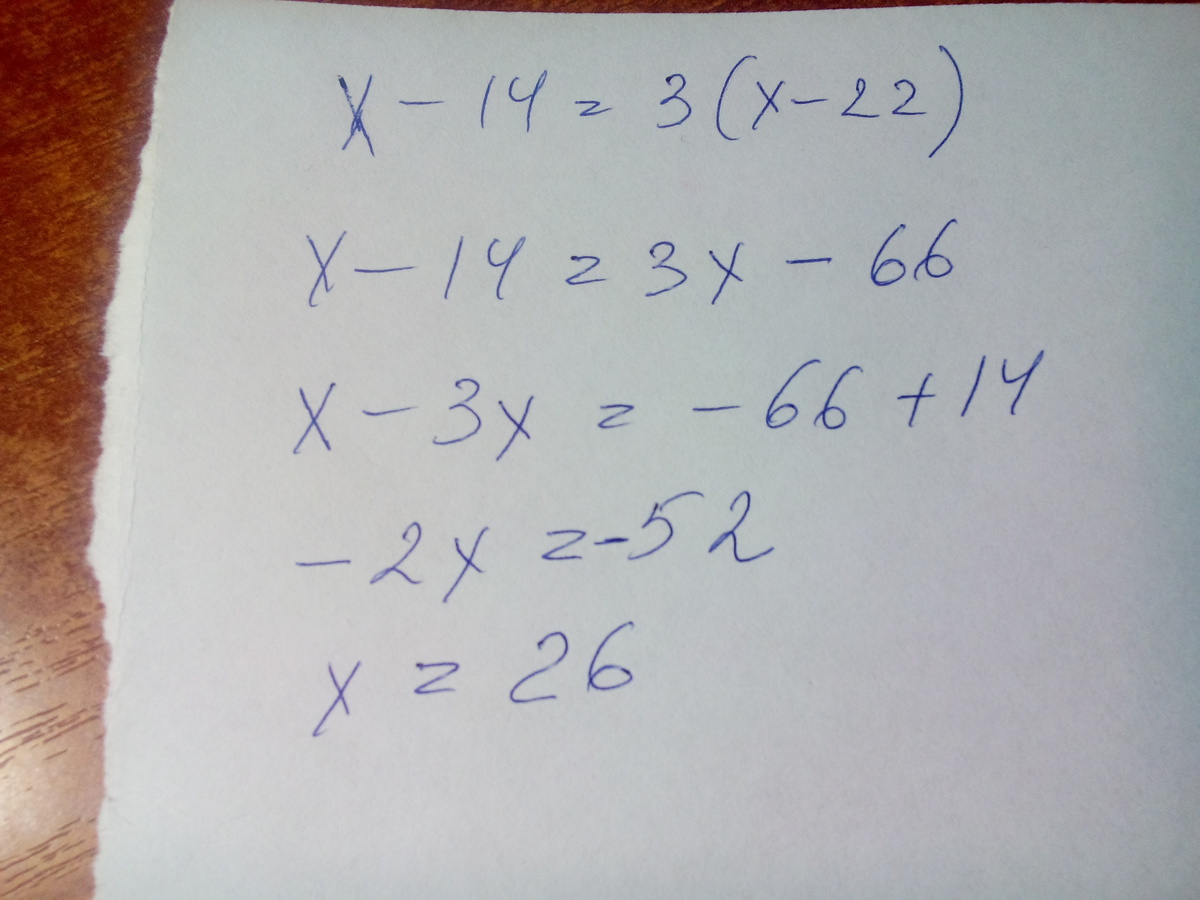 x - 14 = 3(x - 22)
x - 14 = 3x - 66
x - 3x = - 66 + 14
- 2x = -52
x = 26